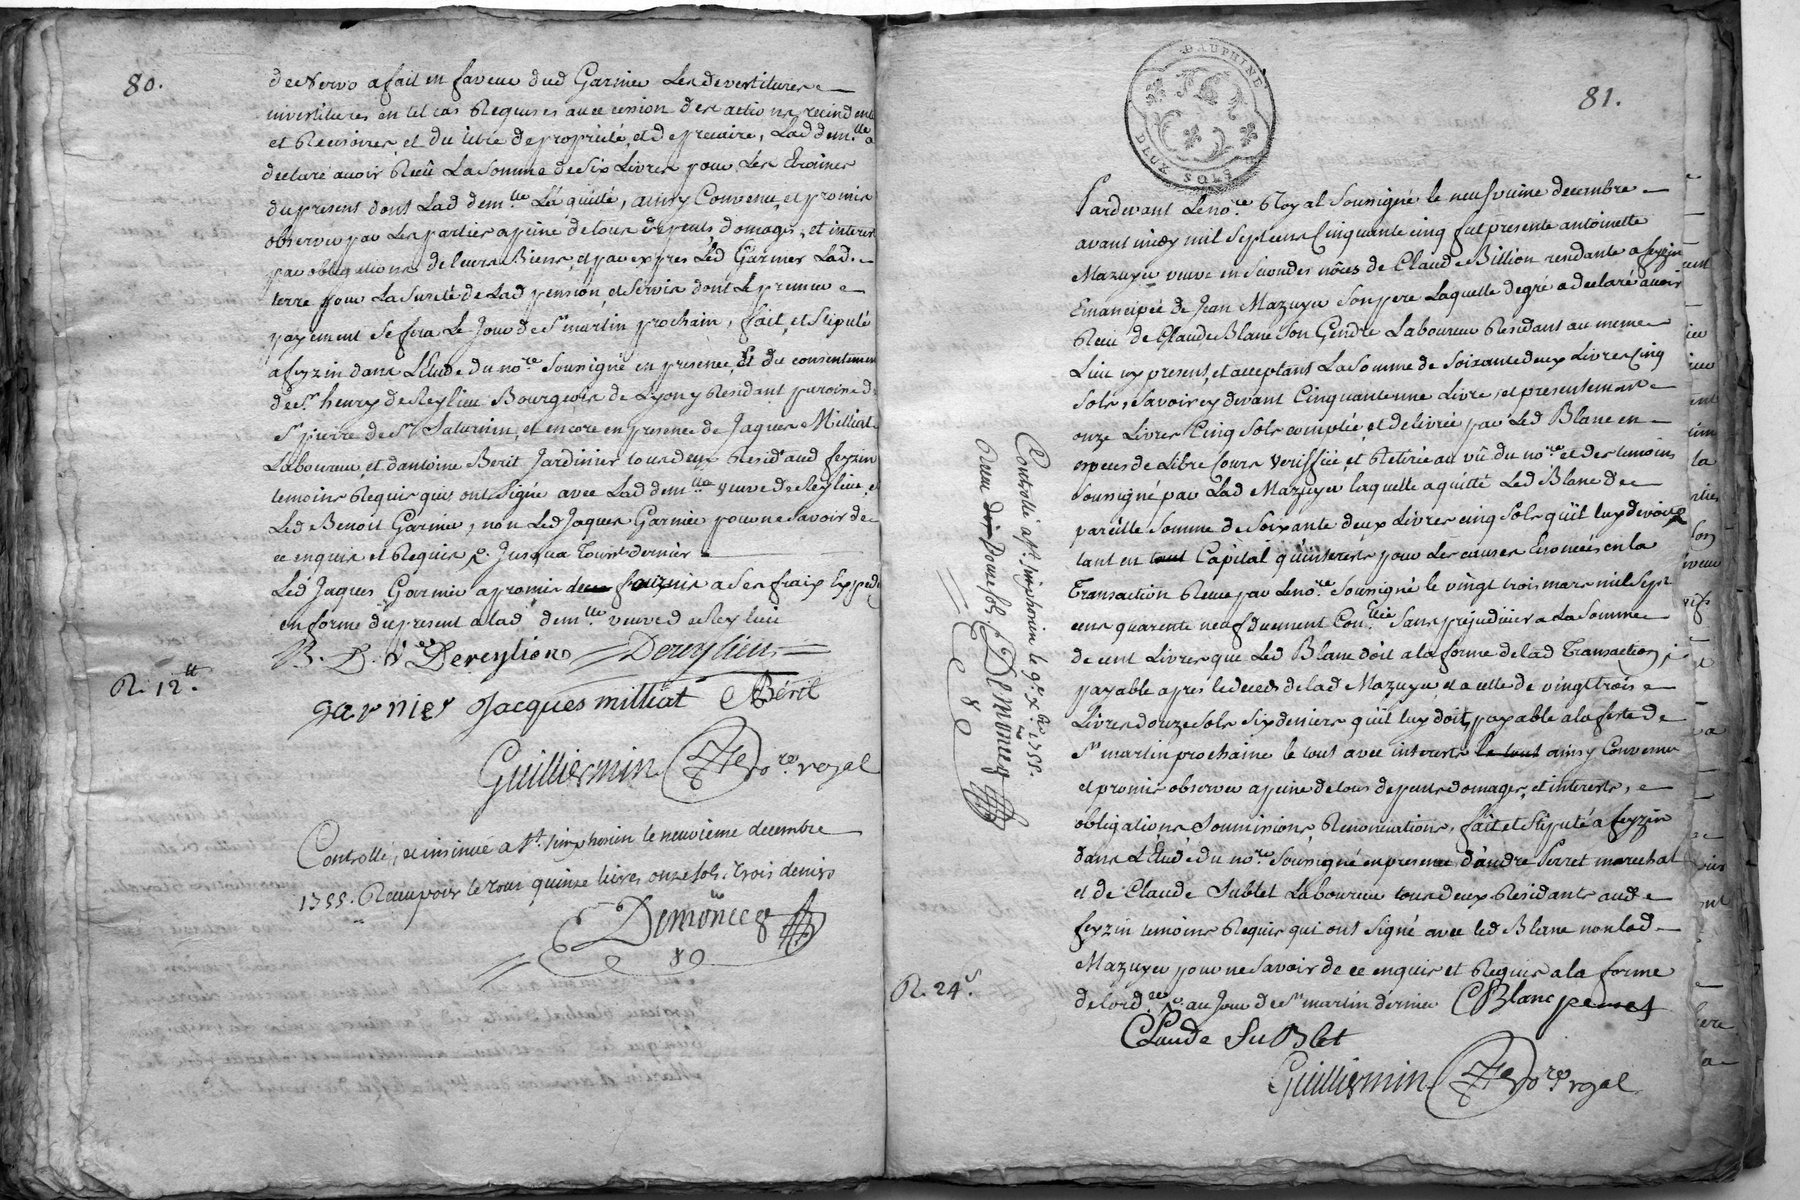 80.
de Nervo a fait en faveur dud Garnier Les devestitures
investitures en tel cas Requises avec cession des actions, rescindent
et Rescisoires et du titre de propriété, et de precaire, Lad dem.lle a
declaré avoir Reçû La Somme de Six Livres pour Les Etraines
du present dont Lad dem.lle L'a quitté, ainsy Convenu, et promis
observer par Les parties a peine de tous depents domages, et interets
par obligations de leurs Biens, et par exprés Léd Garnier Lad
terre pour La Sureté de Lad pension, et Servis dont Le premier
payement Se fera Le Jour de St martin prochain, fait, et Stipulé
a feyzin dans L'Etude du no.re Soussigné en presence, Et du consentement
de Sr henry de Reylieu Bourgeois de Lyon y Residant paroisse de
St pierre de St Saturnin, et encore en presence de Jaques Milliat
Laboureur et d'antoine Berit Jardinier tous deux Resid.s aud feyzin
temoins Requis qui ont Signé avec Lad dem.lle veuve de Reylieu, et
Led Benoit Garnier, non Led Jaques Garnier pour ne Savoir de
ce enquis et Requis, p. Jusqua Tourt dernier
Léd Jaques Garnier a promis fournir a Ses fraix Exped.
en forme du present a lad dem.lle veuve de Reylieu
B. D. ve Dereylion Dereylieu
R. 12.tt
garnier Jacques milliat Bérit
Guilliermin no.re royal
Controllé, et insinué a St. simphorien le neuvieme decembre
1755. Reçu pour le tout quinze livres onze sols, trois deniers
Demoncez
81.
DAUPHINÉ
DEUX SOLS
Pardevant Le no.re Royal Soussigné le neufvieme decembre
avant midy mil Septcens Cinquante cinq fut presente antoinette
Mazuyer veuve en Secondes nôces de Claude Billion residante a feyzin
Emancipée de Jean Mazuyer Son pere Laquelle de gré a declaré avoir
Reçu de Claude Blanc Son Gendre Laboureur Residant au meme
Lieu icy present, et acceptant La Somme de Soixante deux Livres Cinq
Sols, Savoir cy devant Cinquante une Livre, et presentement
onze Livres Cinq Sols comptée, et delivrée par Léd Blanc en
especes de libre Cours verissiée, et Retirée au vû du no.re et des temoins
Soussigné par Lad Mazuyer laquelle a quitté Led Blanc de
pareille Somme de Soixante deux Livres cinq Sols qu'il luy devoit
tant en tout Capital qu'interets pour Les causes Enoncées en la
Transaction Reçue par Le no.re Soussigné le vingt trois mars mil Sept
cens quarente neuf duement Con.llée Sans prejudicier a La Somme
de cent Livres que Led Blanc doit a la forme de lad Transaction,
payable apres le deceds de lad Mazuyer et a celle de vingt trois
Livres douze Sols Six deniers qu'il luy doit, payable a la feste de
St martin prochaine le tout avec interets le tout ainsy Convenu
et promis observer a peine de tous depents domages, et interets,
obligations, Soumissions, Renonciations, fait et Stipulé a feyzin
dans L'Etude du no.re Soussigné en presence d'andre Perret marechal
et de Claude Sublet Laboureur tous deux Residants aud
feyzin temoins Requis qui ont Signé avec led Blanc non Lad
Mazuyer pour ne Savoir de ce enquis et Requis a la forme
de l'ord.ce p. au Jour de St martin dernier CBlanc perret
R. 24s.
Claude SuBlet
Guilliermin no.re royal
Controllé a st. simphorien le 9e. xbre. 1755.
Reçu dix Douze sols Demoncez